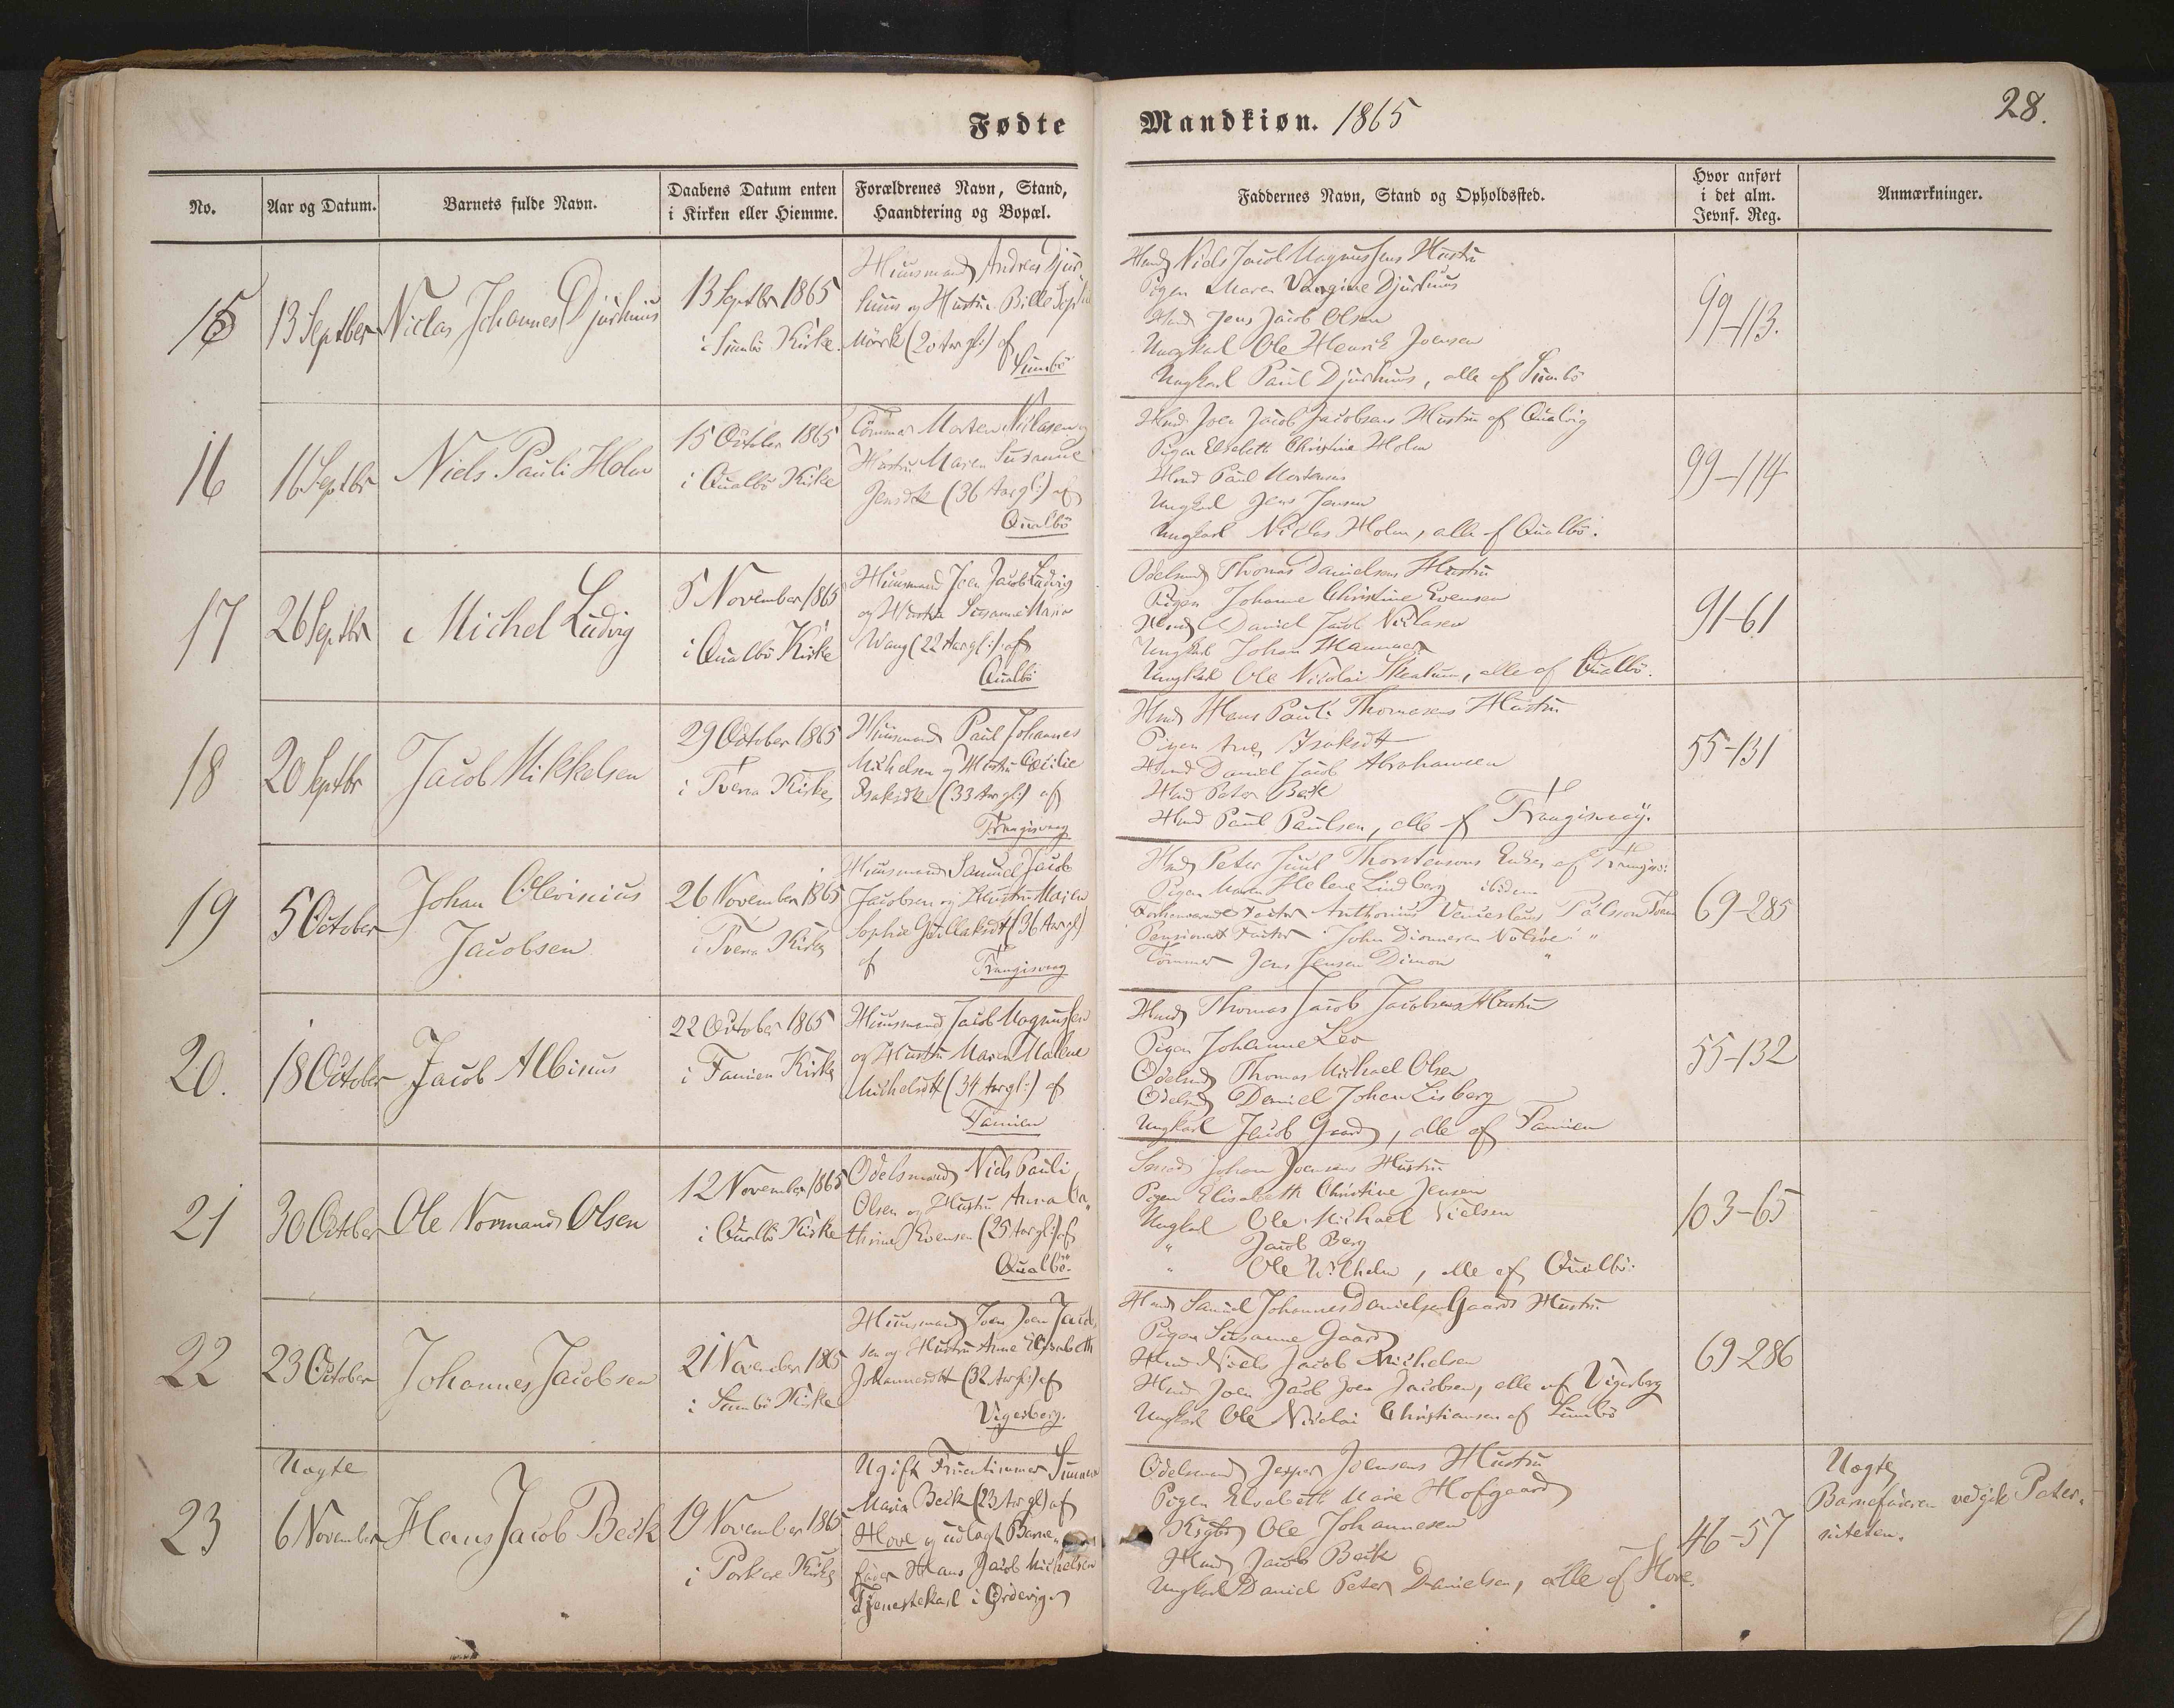 Fødte
Mandkiøn. 1865
28.
No.
Aar og Datum.
Barnets fulde Navn.
Daabens Datum enten
i Kirken eller Hiemme.
Forældrenes Navn, Stand,
Haandtering og Bopæl.
Faddernes Navn, Stand og Opholdssted.
Hvor anført
i det alm.
Jevnf. Reg.
Anmærkninger.
15
13 Septber
Niclas Johannes Djurhuus
13 Septbr 1865
i Sumbö Kirke.
Huusmand Andreas Djur-
huus og Hustru Bille Soph
Mörk (20 Aar gl:) af
Sumbö
Hmd Niels Jacob Magnussens Hustru
Pigen Maren Djurhuus
Hmd Jens Jacob Olsen
Ungkarl Ole Henrik Joensen
Ungkarl Paul Djurhuus, alle af Sumbö
99-113.
16
16 Septbr
Niels Pauli Holm
15 Octbr 1865
i Qualbö Kirke
Tömmer Morten Niclasen og
Hustru Maren Susanne
Jensdtr (36 Aar gl:) af
Qualbö
Hmd Joen Jacob Jacobsens Hustru af Qualvig
Pigen Elsebeth Christine Holm
Hmd Paul Mortensen
Ungkarl Jens Jensen
Ungkarl Niclas Holm, alle af Qualbö.
99-114
17
26 Septbr
Michel Ludvig
5 November 1865
i Qualbö Kirke
Huusmand Joen Jacob Ludvig
og Hustru Susanne Maria
Wang (22 Aar gl:) af
Qualbö
Odelsmd Thomas Danielsens Hustru
Pigen Johanne Christine Evensen
Hmd Daniel Jacob Niclasen
Ungkarl Johan Hammer
Ungkarl Ole Nicolai, alle af Qualbö.
91-61
18
20 Septbr
Jacob Mikkelsen
29 October 1865
i Tveraa Kirke
Huusmand Paul Johannes
Michelsen og Hustru Cecilie
Isaksdtr (33 Aar gl:) af
Trangisvaag
Hmd Hans Pauli Thomasens Hustru
Pigen Isaksdtr
Hmd Daniel Jacob Abrahamsen
Hmd Peter Beck
Hmd Paul Paulsen, alle af Trangisvaag.
55-131
19
5 October
Johan Olevinius
Jacobsen
26 November 1865
i Tveraa Kirke
Huusmand Samuel Jacob
Jacobsen og Hustru Maren
Sophie Gullaksdtr (36 Aar gl)
af Trangisvaag
Hmd Peter Juul Thorstensens Enke af Trangisv:
Pigen Maren Helene Lindberg ibidem
Forhenværende Factor Anthonius Venceslaus
Pensioneret Factor John Dionneson
Tömmer Jens Jensen Dimon
69-285
20.
18 October
Jacob Albinus
22 October 1865
i Famien Kirke
Huusmand Jacob Magnussen
og Hustru Maren Malene
Michelsdtr (34 Aar gl:) af
Famien
Hmd Thomas Jacob Jacobsens Hustru
Pigen Johanne Leo
Odelsmd Thomas Michael Olsen
Odelsmd Daniel Johan Lisberg
Ungkarl Jacob Gaard, alle af Famien
55-132
21
30 Octber
Ole Normand Olsen
12 November 1865
i Qualbö Kirke
Odelsmand Niels Pauli
Olsen og Hustru Anna Ca-
thrine Evensen (25 Aar gl:) af
Qualbö.
Johan Joensens Hustru
Pigen Elisabeth Christine Jensen
Ungkarl Ole Michael Nielsen
" Jacob Berg
" Ole Wilhelm, alle af Qualbö.
103-65
22
23 October
Johannes Jacobsen
21 November 1865
i Sumbö Kirke
Huusmand Joen Joen Jacob-
sen og Hustru Anne Elisabeth
Johannesdtr (32 Aar gl:) af
Vigerberg.
Hmd Samuel Johannes Danielsen Gaards Hustru
Pigen Susanne Gaard
Hmd Niels Jacob Michelsen
Hmd Joen Jacob Joen Jacobsen, alle af Vigerberg
Ungkarl Ole Nicolai Christiansen af Sumbö
69-286
23
Uægte
6 November
Hans Jacob Beck
19 November 1865
i Porkere Kirke
Ugift Fruentimmer Sunneva
Maria Beck (23 Aar gl) af
Hove og udlagt Barne-
fader Hans Jacob Michelsen
Tjenestekarl i Ördevig.
Odelsmand Jesper Joensens Hustru
Pigen Elsebeth Marie Hofgaard
Kgbd Ole Johannesen
Hmd Jacob Beck
Ungkarl Daniel Peter Danielsen, alle af Hove.
46-57
Uægte
Barnefaderen vedgik Pater-
niteten.